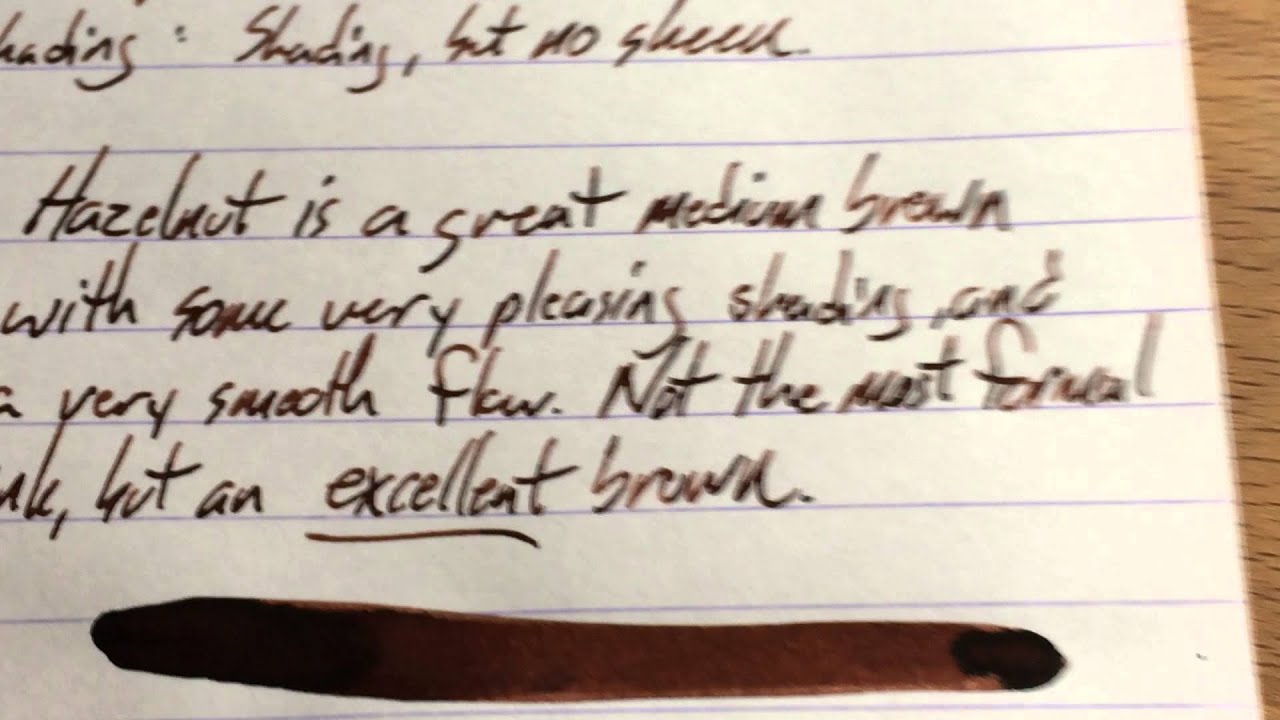 hading: Shading, but no sheen.
Hazelnut is a great medium brown
with some very pleasing shading, and
a very smooth flow. Not the most formal
nk, but an excellent brown.